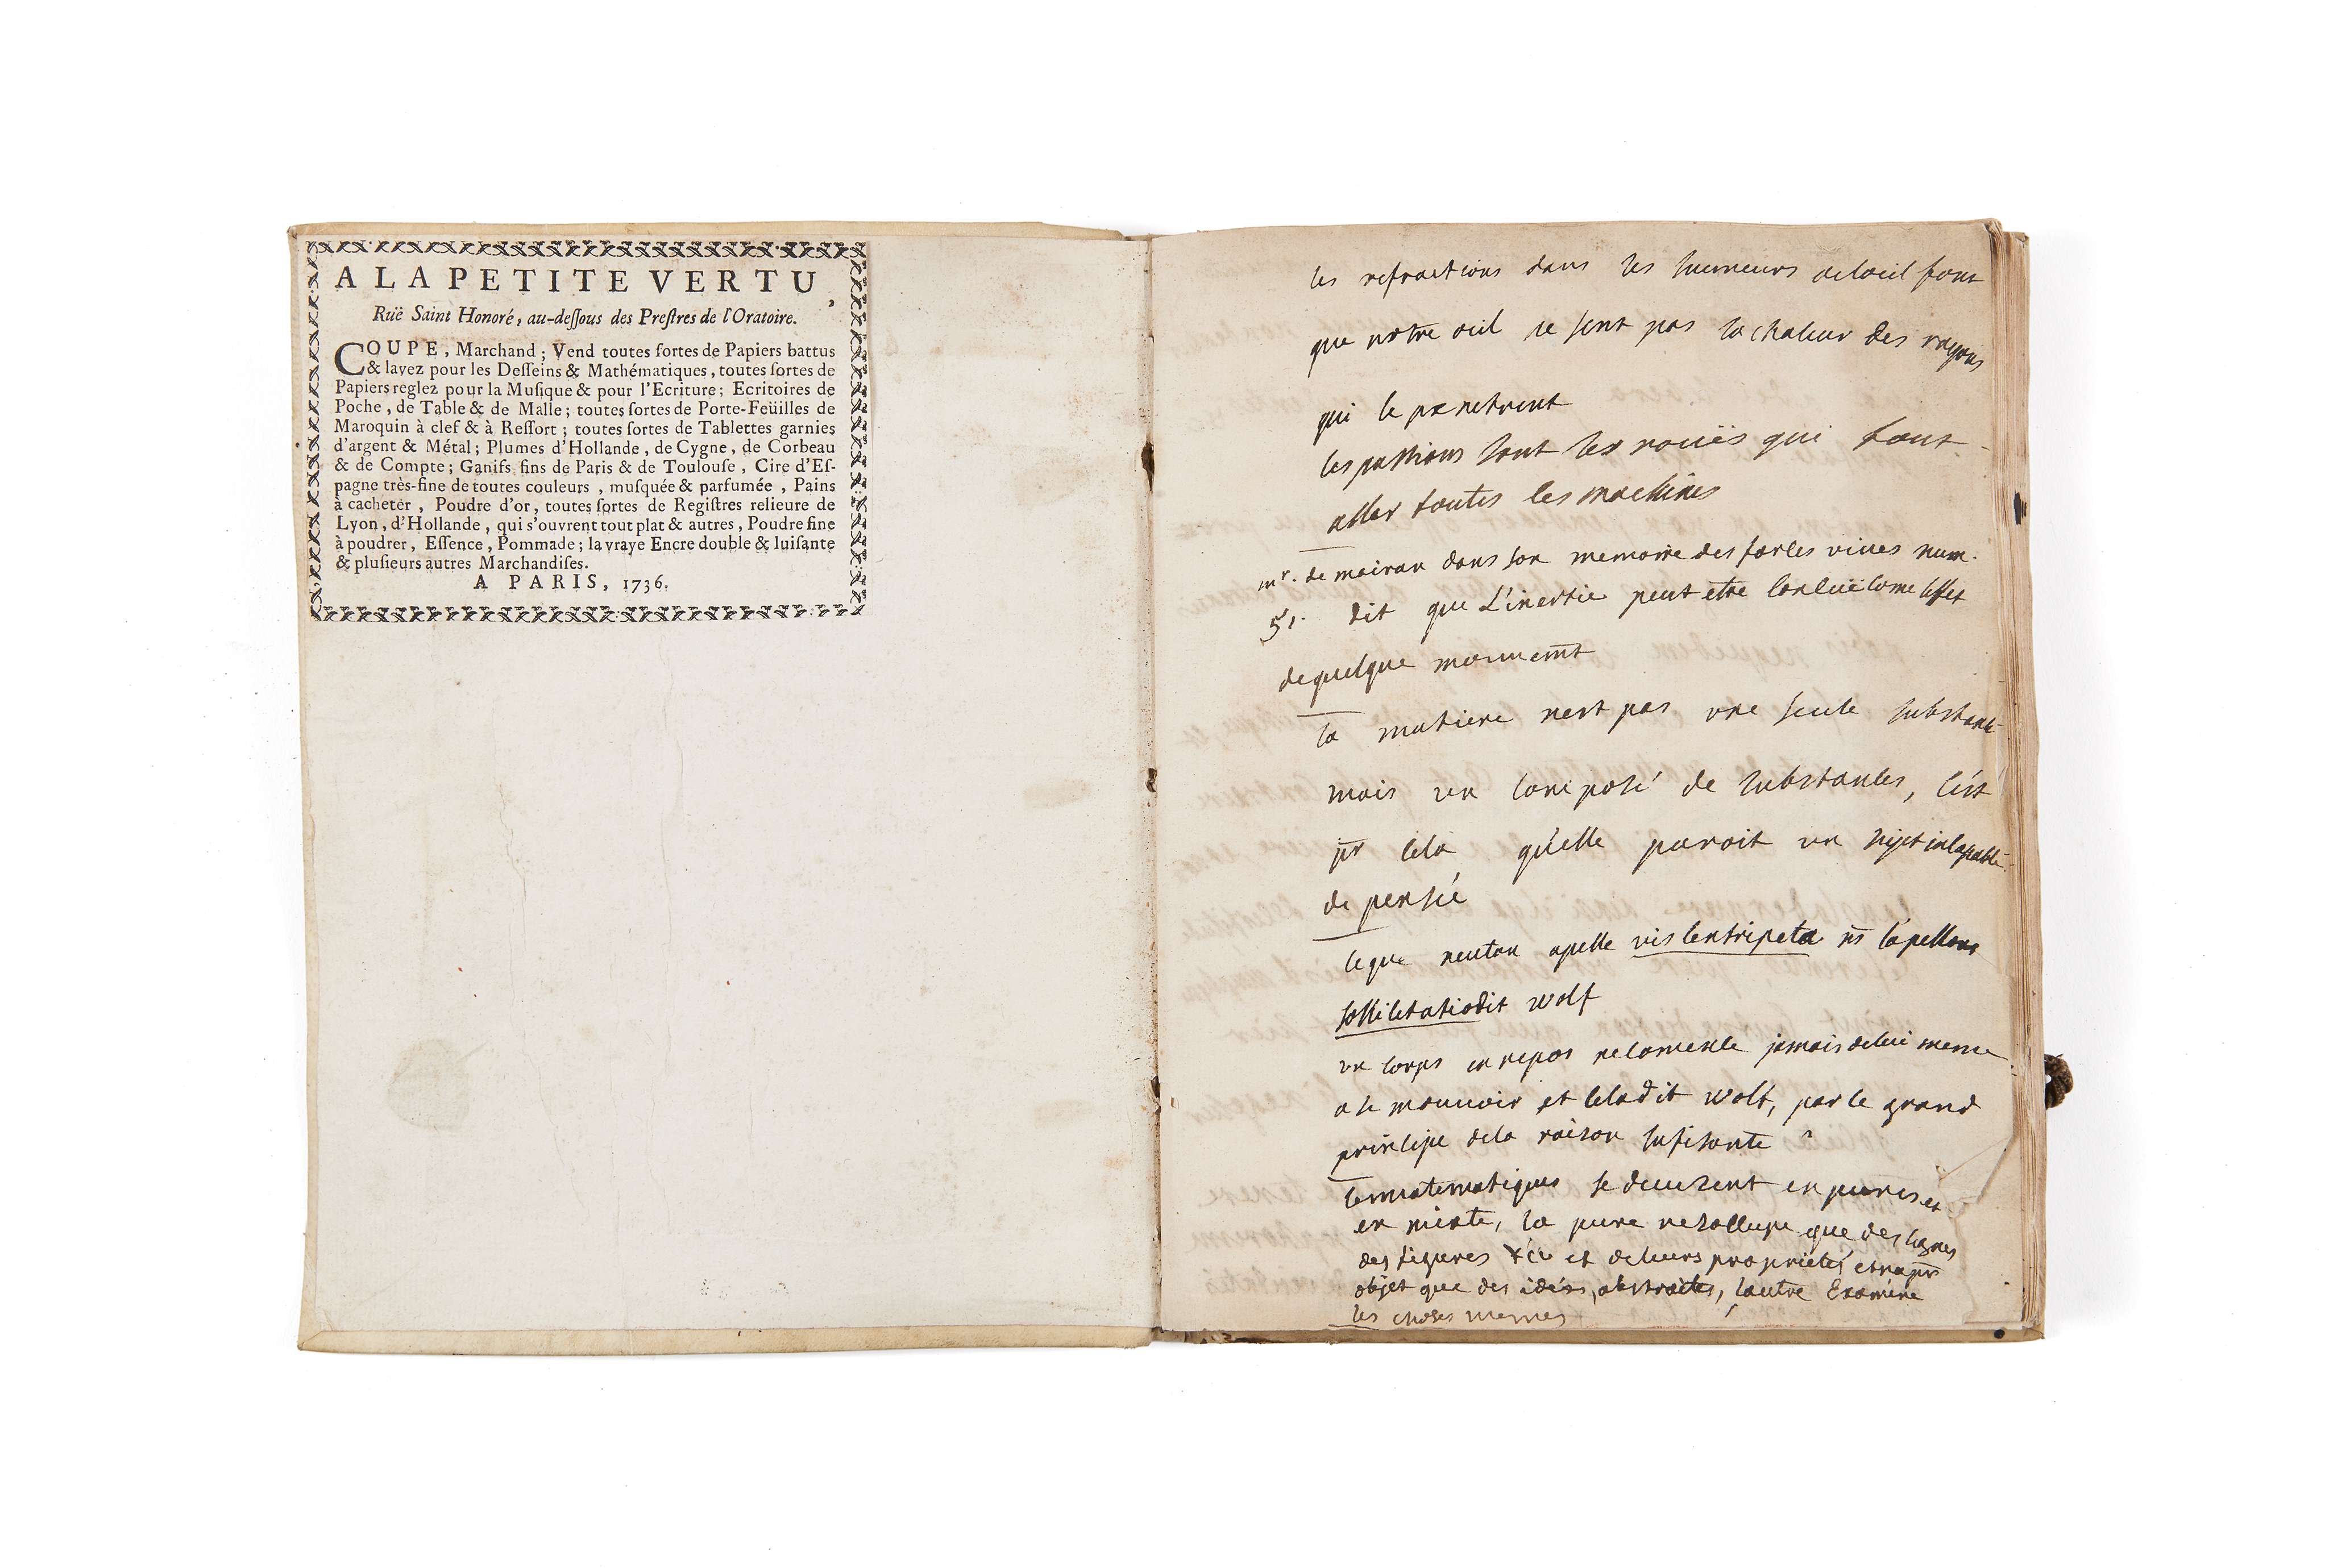 A LA PETITE VERTU,
Ruë Saint Honoré, au-deſſous des Preſtres de l'Oratoire.
COUPE, Marchand; Vend toutes ſortes de Papiers battus
& lavez pour les Deſſeins & Mathématiques, toutes ſortes de
Papiers reglez pour la Muſique & pour l'Ecriture; Ecritoires de
Poche, de Table & de Malle; toutes ſortes de Porte-Feüilles de
Maroquin à clef & à Reſſort; toutes ſortes de Tablettes garnies
d'argent & Métal; Plumes d'Hollande, de Cygne, de Corbeau
& de Compte; Ganifs fins de Paris & de Toulouſe, Cire d'Eſ-
pagne très-fine de toutes couleurs, muſquée & parfumée, Pains
à cacheter, Poudre d'or, toutes ſortes de Regiſtres relieure de
Lyon, d'Hollande, qui s'ouvrent tout plat & autres, Poudre fine
à poudrer, Eſſence, Pommade; la vraye Encre double & luiſante
& pluſieurs autres Marchandiſes.
A PARIS, 1736.
les refractions dans les humeurs de loeil font
que notre oeil ne sent pas la chaleur des rayons
qui le penetrent
les passions sont les rouës qui font
aller toutes les machines
mr. de mairan dans son memoire des forces vives num.
51. dit que L'inertie peut etre concüe come leffet
de quelque mouuemt
la matiere nest pas une seule substance
mais un composé de substances, c'est
pr cela qu'elle paroit un sujet incapable
de pensée
ce que neuton apelle vis centripeta ns l'apellons
sollicitatio dit wolf
un corps en repos ne comence jamais de lui meme
a se mouuoir et cela dit wolf, par le grand
principe de la raison sufisante
les matematiques se diuisent en pures et
en mixte, la pure ne soccupe que des lignes
des figures &c et de leurs proprietés et na pr
objet que des idées abstraites, lautre Examine
les choses memes